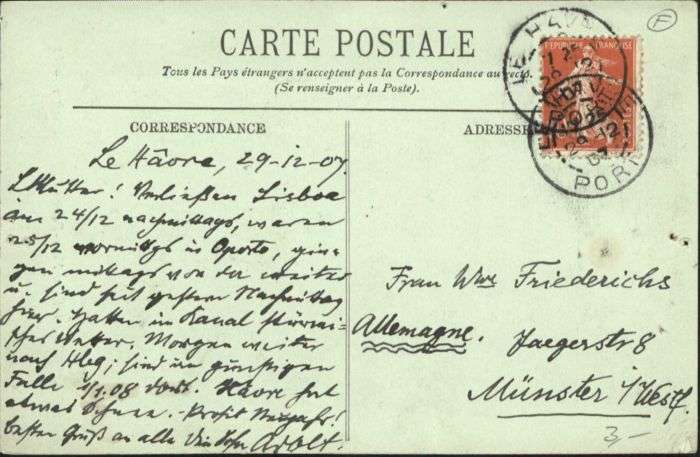 CARTE POSTALE
Tous les Pays étrangers n'acceptent pas la Correspondance au recto.
(Se renseigner à la Poste).
CORRESPONDANCE
ADRESSE
REPUBLIQUE FRANÇAISE
LE HAVRE
PORT
F
Le Hâvre, 29-12-07.
L. Mutter! Verließen Lisboa
am 24/12 nachmittags, waren
25/12 vormittgs in Oporto, gin-
gen mittags von da weiter
u. sind seit gestern Nachmittag
hier. Hatten im Kanal stürmi-
sches Wetter. Morgen weiter
nach Hbg; sind im günstigen
Falle 1/1.08 dort. Hâvre hat
etwas Schnee. Prosit Neujahr!
besten Gruß an alle Dein Sohn Adolf.
Frau Wwe Friederichs
Allemagne.
Jaegerstr 8
Münster i/Westf.
3,-